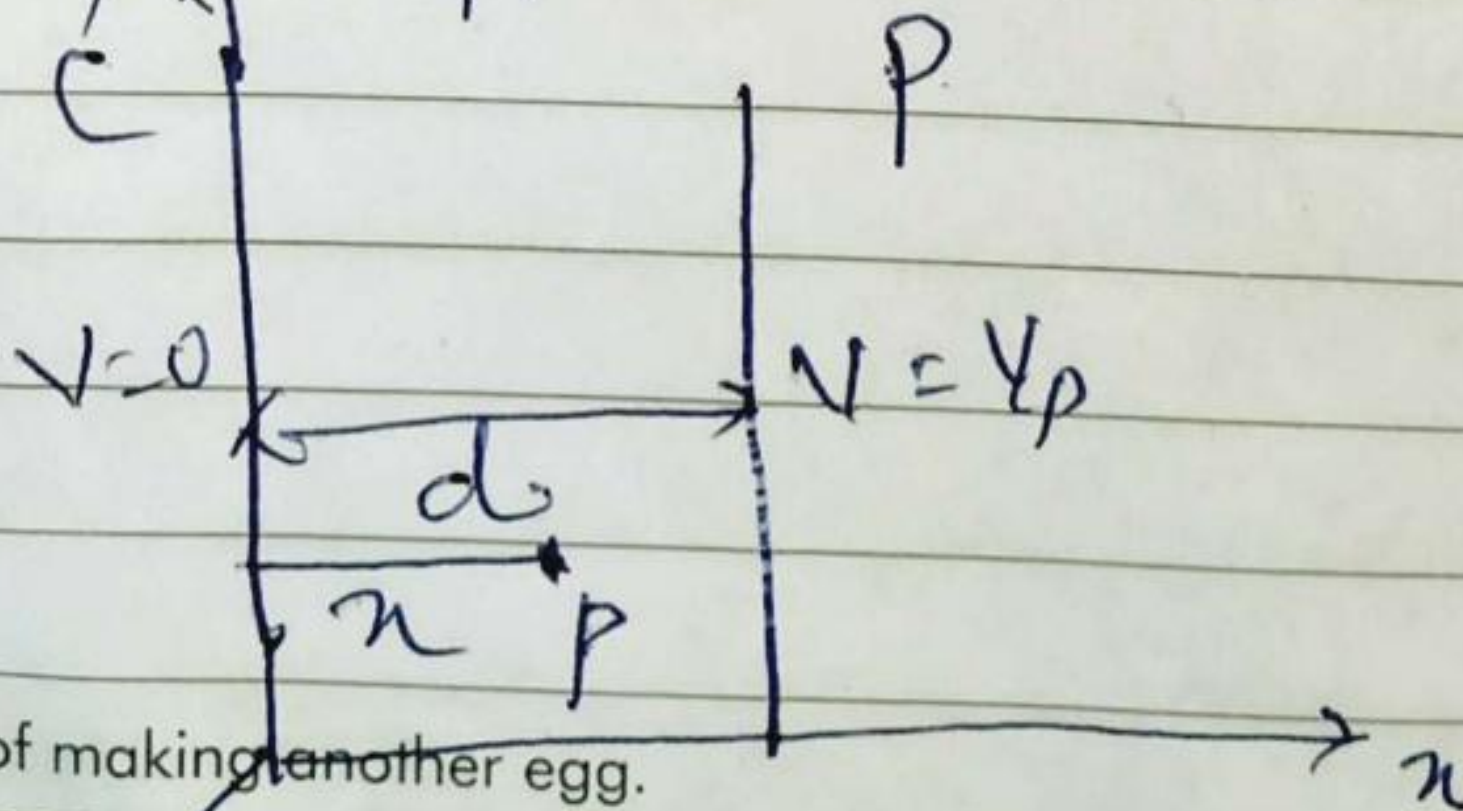 C P
V=0 V = Vp
d
x P
of making another egg.
x